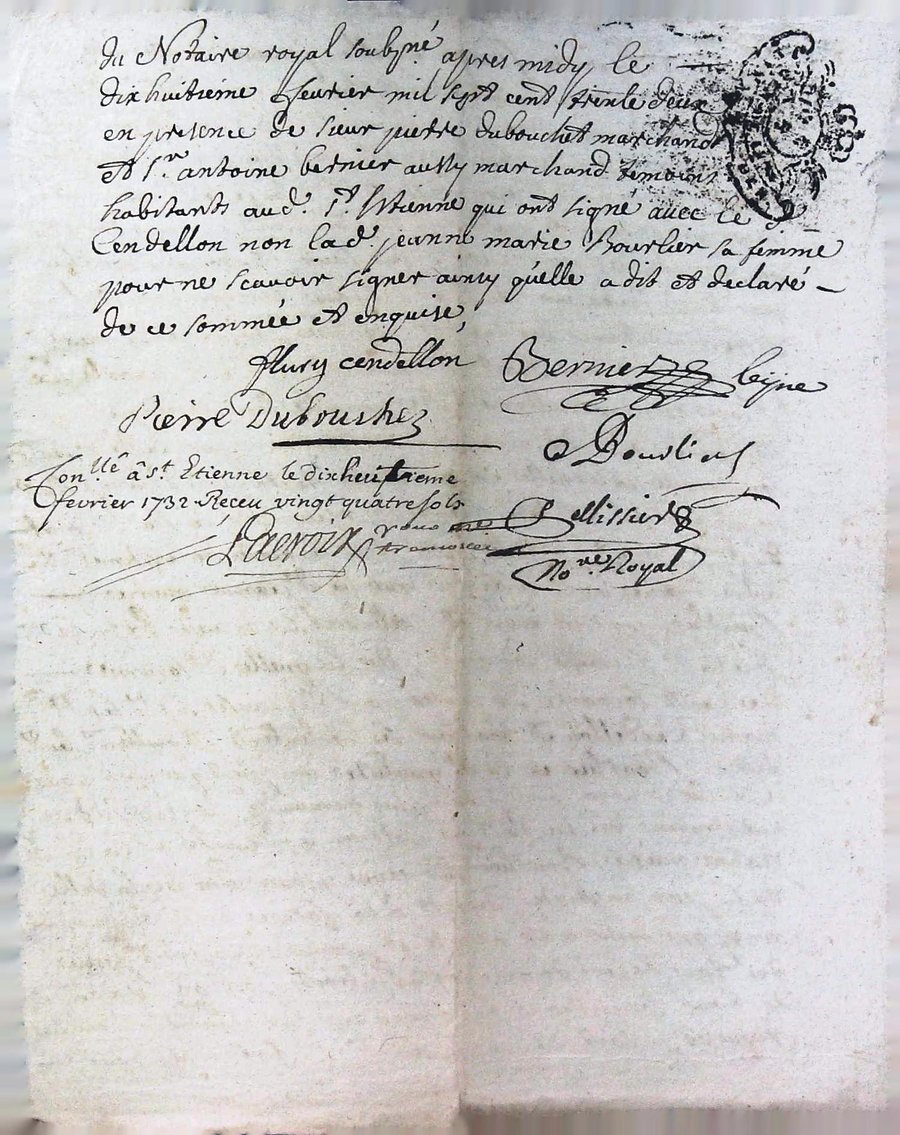 du Notaire royal soubsné apres midy le
dix huitieme fevrier mil sept cent trente deux
en presence de sieur pierre dubouchet marchand
et sr. antoine bernier aussy marchand temoins
habitants aud. st. Etienne qui ont signé avec led
Cendellon non lad. jeanne marie Bourlier sa femme
pour ne scavoir signer ainsy qu'elle a dit et declaré
de ce sommée et enquise,
flury cendellon Bernier
Pierre Dubouchez
Bourlier
Conllé a st. Etienne le dixheuitieme
fevrier 1732 Receu vingt quatre sols
Lacroix
Pellissier
No.re Royal